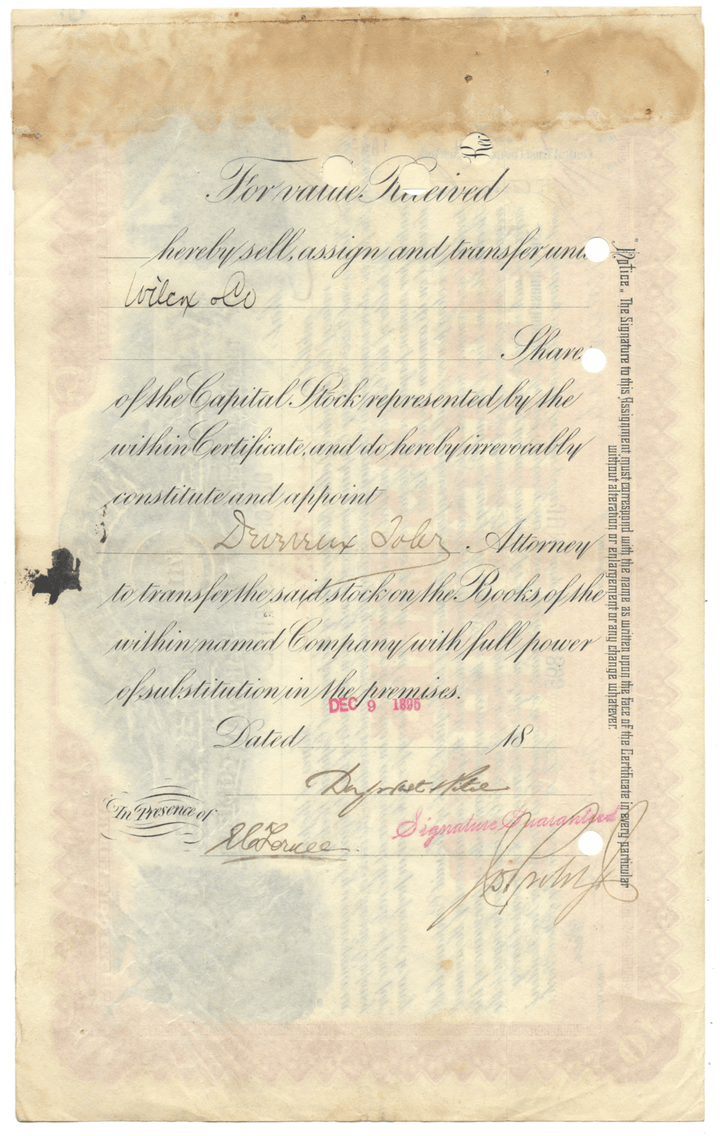 For value Received
hereby sell, assign and transfer unt
Wilcox & Co
Share
of the Capital Stock represented by the
within Certificate, and do hereby irrevocably
constitute and appoint
Attorney
to transfer the said stock on the Books of the
within named Company with full power
of substitution in the premises.
DEC 9 1895
Dated 18
In Presence of
Signature Guaranteed
Notice. The Signature to this Assignment must correspond with the name as written upon the face of the Certificate in every particular
without alteration or enlargement or any change whatever.